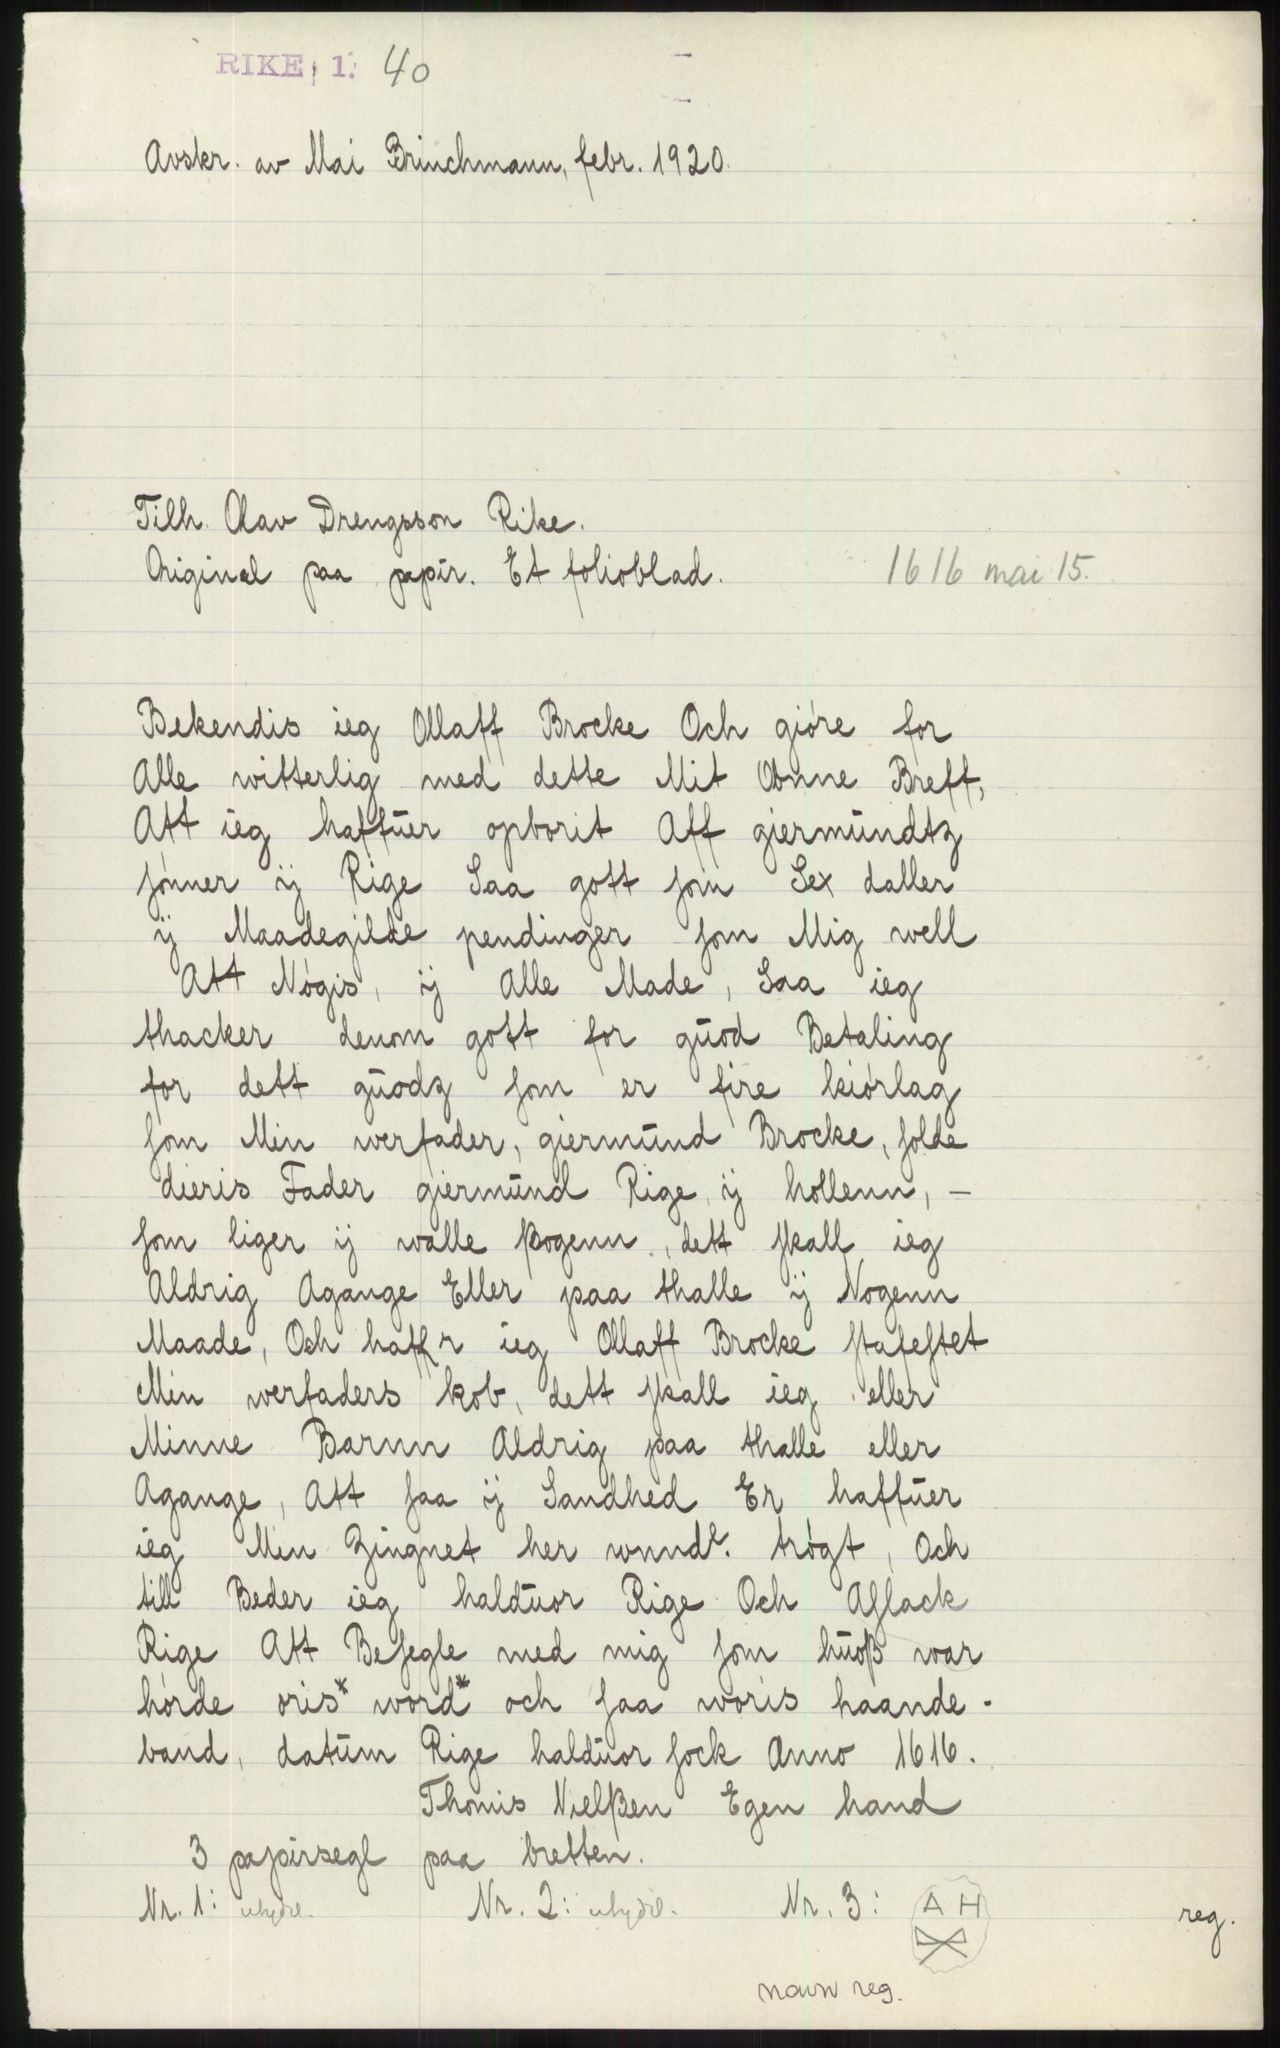 RIKE, 1. 40
Avskr. av Mai Brinchmann, febr. 1920.
Tilh. Olav Drengsson Rike.
Original paa papir. Et folioblad. 1616 mai 15.
Bekendis ieg Ollaff Brocke Och giøre for
Alle witterlig med dette Mit Obnne Breff,
Att ieg haffŭer opborit Aff giermŭndtz
ſønner ÿ Rige Saa gott ſom Sex daller
ÿ Maadegilde pendinger ſom Mig well
Att Nøgis, ÿ Alle Made, Saa ieg
thacker denom gott for gŭod Betaling
for dett gŭodz ſom er fire kiørlag
ſom Min werfader, giermŭnd Brocke, ſolde
dieris Fader giermŭnd Rige ÿ hollenn, –
ſom liger ÿ walle ſogenn, dett ſkall ieg
Aldrig Agange Eller paa thalle ÿ Nogenn
Maade, Och haffr ieg Ollaff Brocke ſtafeſtet
Min werfaders kob, dett ſkall ieg eller
Minne Barnn Aldrig paa thalle eller
Agange, Att ſaa ÿ Sandhed Er haffŭer
ieg Min Zingnet her wnndr. trøgt, Och
till Beder ieg haldŭor Rige Och Aſlack
Rige Att Beſegle med mig ſom hŭoß war
hørde oris* word* och ſaa woris haande-
band, datŭm Rige haldŭor ſock Anno 1616.
Thomis Nielßen Egen hand
3 papirsegl paa bretten.
Nr. 1: utydel. Nr. 2: utydel. Nr. 3: A H
reg.
navn reg.